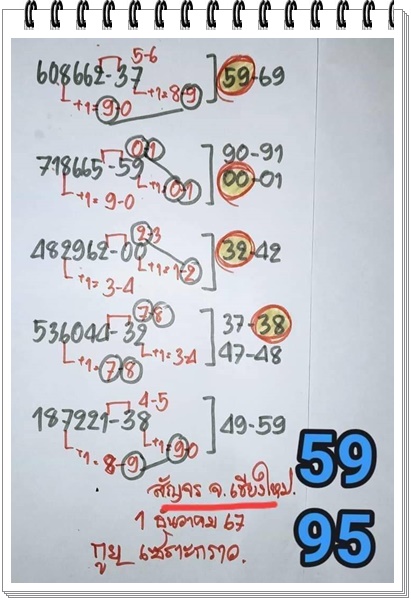 5-6
608662-37 59-69
+1=9-0 +1=8-9
0-1
718665-59 90-91
+1=9-0 +1=0-1 00-01
2-3
482962-00 32-42
+1=3-4 +1=1-2
7-8
536044-39 37-38
+1=7-8 +1=3-4 47-48
4-5
187221-38 49-59
+1=8-9 +1=9-0
59
สัญจร จ.เชียงใหม่.
1 ธันวาคม 67
95